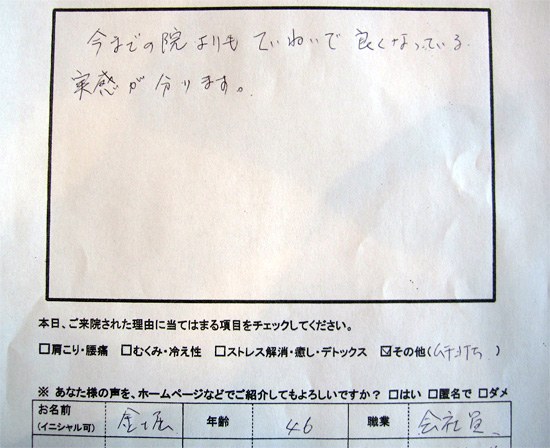 今までの院よりも ていねいで 良くなっている
実感が 分ります。
本日、ご来院された理由に当てはまる項目をチェックしてください。
□肩こり・腰痛 □むくみ・冷え性 □ストレス解消・癒し・デトックス ☑その他(ムチ打ち)
※ あなた様の声を、ホームページなどでご紹介してもよろしいですか? □はい □匿名で □ダメ
お名前 (イニシャル可) 金堀 年齢 46 職業 会社員